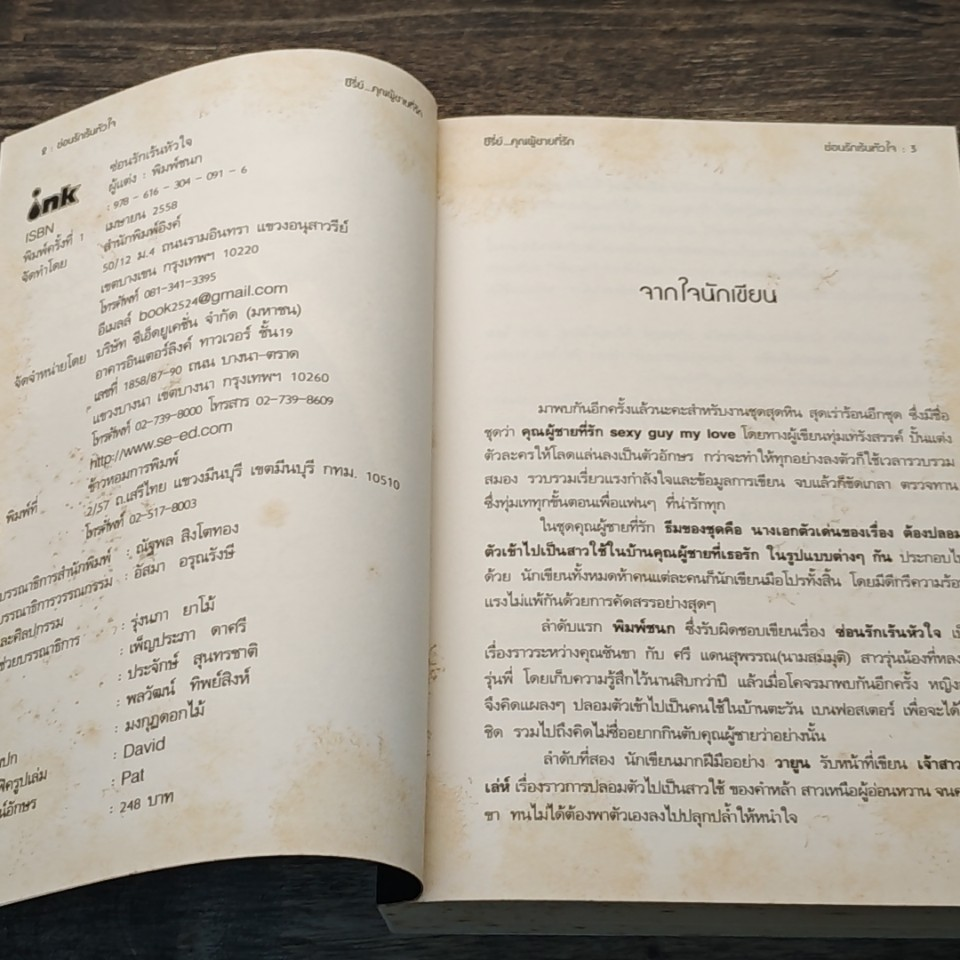 2 : ซ่อนรักเร้นหัวใจ
ซีรี่ย์...คุณผู้ชายที่รัก
ink
ซ่อนรักเร้นหัวใจ
ผู้แต่ง : พิมพ์ชนก
ISBN : 978 - 616 - 304 - 091 - 6
พิมพ์ครั้งที่ 1 เมษายน 2558
จัดทำโดย สำนักพิมพ์อิงค์
50/12 ม.4 ถนนรามอินทรา แขวงอนุสาวรีย์
เขตบางเขน กรุงเทพฯ 10220
โทรศัพท์ 081-341-3395
อีเมลล์ book2524@gmail.com
จัดจำหน่ายโดย บริษัท ซีเอ็ดยูเคชั่น จำกัด (มหาชน)
อาคารอินเตอร์ลิงค์ ทาวเวอร์ ชั้น19
เลขที่ 1858/87-90 ถนน บางนา-ตราด
แขวงบางนา เขตบางนา กรุงเทพฯ 10260
โทรศัพท์ 02-739-8000 โทรสาร 02-739-8609
http://www.se-ed.com
พิมพ์ที่ ข้าวหอมการพิมพ์
2/57 ถ.เสรีไทย แขวงมีนบุรี เขตมีนบุรี กทม. 10510
โทรศัพท์ 02-517-8003
บรรณาธิการสำนักพิมพ์ : ณัฐพล สิงโตทอง
บรรณาธิการวรรณกรรม : อัสมา อรุณรังษี
และศิลปกรรม
ช่วยบรรณาธิการ : รุ่งนภา ยาโม้
: เพ็ญประภา ดาศรี
: ประจักษ์ สุนทรชาติ
: พลวัฒน์ ทิพย์สิงห์
: มงกุฎดอกไม้
: David
: Pat
: 248 บาท
ซีรี่ย์...คุณผู้ชายที่รัก
ซ่อนรักเร้นหัวใจ : 3
จากใจนักเขียน
มาพบกันอีกครั้งแล้วนะคะสำหรับงานชุดสุดหิน สุดเร่าร้อนอีกชุด ซึ่งมีชื่อ
ชุดว่า คุณผู้ชายที่รัก sexy guy my love โดยทางผู้เขียนทุ่มเทรังสรรค์ ปั้นแต่ง
ตัวละครให้โลดแล่นลงเป็นตัวอักษร กว่าจะทำให้ทุกอย่างลงตัวก็ใช้เวลารวบรวม
สมอง รวบรวมเรี่ยวแรงกำลังใจและข้อมูลการเขียน จบแล้วก็ขัดเกลา ตรวจทาน
ซึ่งทุ่มเททุกขั้นตอนเพื่อแฟนๆ ที่น่ารักทุก
ในชุดคุณผู้ชายที่รัก ธีมของชุดคือ นางเอกตัวเด่นของเรื่อง ต้องปลอม
ตัวเข้าไปเป็นสาวใช้ในบ้านคุณผู้ชายที่เธอรัก ในรูปแบบต่างๆ กัน ประกอบไป
ด้วย นักเขียนทั้งหมดห้าคนแต่ละคนก็นักเขียนมือโปรทั้งสิ้น โดยมีดีกรีความร้อน
แรงไม่แพ้กันด้วยการคัดสรรอย่างสุดๆ
ลำดับแรก พิมพ์ชนก ซึ่งรับผิดชอบเขียนเรื่อง ซ่อนรักเร้นหัวใจ
เรื่องราวระหว่างคุณชันขา กับ ศรี แดนสุพรรณ(นามสมมุติ) สาวรุ่นน้องที่หลง
รุ่นพี่ โดยเก็บความรู้สึกไว้นานสิบกว่าปี แล้วเมื่อโคจรมาพบกันอีกครั้ง
จึงคิดแผลงๆ ปลอมตัวเข้าไปเป็นคนใช้ในบ้านตะวัน เบนฟอสเตอร์ เพื่อจะได้
ชิด รวมไปถึงคิดไม่ซื่ออยากกินตับคุณผู้ชายว่าอย่างนั้น
ลำดับที่สอง นักเขียนมากฝีมืออย่าง วายูน รับหน้าที่เขียน เจ้าสาว
เล่ห์ เรื่องราวการปลอมตัวไปเป็นสาวใช้ ของคำหล้า สาวเหนือผู้อ่อนหวาน
ขา ทนไม่ได้ต้องพาตัวเองลงไปปลุกปล้ำให้หนำใจ